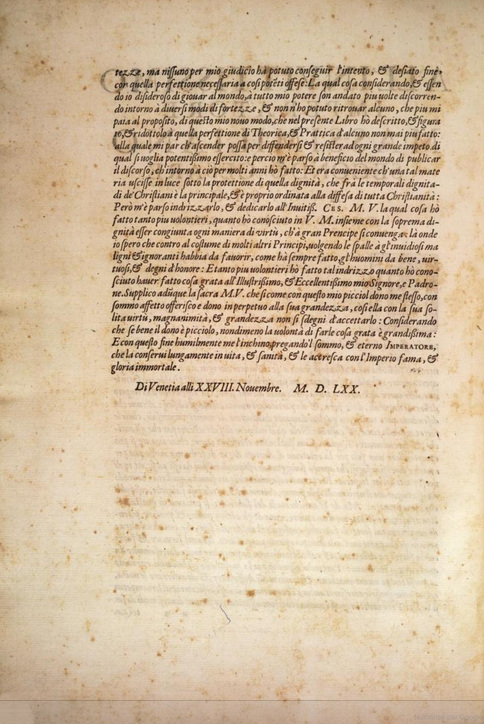 tezza, ma nissuno per mio giudicio hà potuto conseguir l'intento, & desiato fine,
con quella perfettione necessaria a cosi potẽti offese: La qual cosa considerando, & essen
do io disideroso di giouar al mondo, à tutto mio potere son andato piu uolte discorren-
do intorno à diuersi modi di fortezza, & non n'ho potuto ritrouar alcuno, che piu mi
paia al proposito, di questo mio nouo modo, che nel presente Libro hò descritto, & figura
to, & ridottolo à quella perfettione di Theorica, & Prattica d'alcuno non mai piu fatto:
alla quale mi par ch'ascender possa per differndersi & resister ad ogni grande impeto di
qual si uoglia potentißimo essercito: e percio m'è parso à beneficio del mondo di publicar
il discorso, ch'intorno à ciò per molti anni hò fatto: Et era conueniente ch'una tal mate
ria uscisse in luce sotto la protettione di quella dignità, che frà le temporali dignita-
di de' Christiani è la principale, & è proprio ordinata alla diffesa di tutta Christianità:
Però m'è parso indrizzarlo, & dedicarlo all'Inuitiß. CES. M. V. la qual cosa hò
fatto tanto piu uolontieri, quanto hò conosciuto in V. M. insieme con la soprema di-
gnità esser congiunta ogni maniera di virtù, ch'à gran Prencipe si conuenga: là onde
io spero che contro al costume di molti altri Principi, uolgendo le spalle à gl'inuidiosi ma
ligni & ignoranti habbia da fauorir, come hà sempre fatto, gl'huomini da bene, vir-
tuosi, & degni d'honore: Et tanto piu uolontieri hò fatto tal indrizzo quanto hò cono-
sciuto hauer fatto cosa grata all'Illustrißimo, & Eccellentißimo mio Signore, e Padro-
ne. Supplico adũque la sacra M.V. che si come con questo mio picciol dono me stesso, con
sommo affetto offerisco e dono in perpetuo alla sua grandezza, cosi ella con la sua so-
lita virtù, magnanimità, & grandezza non si sdegni d'accettarlo: Considerando
che se bene il dono è picciolo, nondimeno la uolontà di farle cosa grata è grandißima:
E con questo fine humilmente me l'inchino, pregando l'sommo, & eterno IMPERATORE,
che la conserui lungamente in uita, & sanità, & le accresca con l'Imperio fama, &
gloria immortale.
Di Venetia alli XXVIII. Nouembre. M. D. LXX.